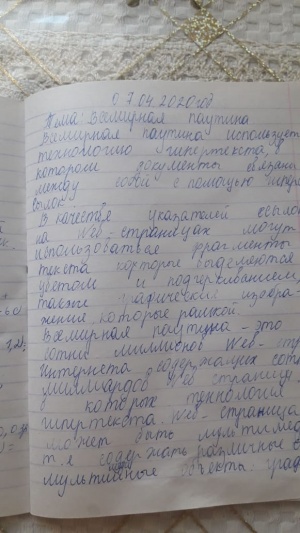 07.04.2020 год
Тема: Всемирная паутина
Всемирная паутина использует
технологию гипертекста, в
котором документы связаны
между собой с помощью гипер
ссылок
В качестве указателей ссылок
на Web-страницах могут
использоваться фрагменты
текста которые выделяются
цветом и подчеркиванием,
также графический изобра-
жение которые рамкой
Всемирная паутина - это
сотни миллионов Web-
Интернета содержащих
миллиардов Web страниц
в которых технология
гипертекста. Web-страница
может быть
т.е содержать различные
мультимедийные объекты: